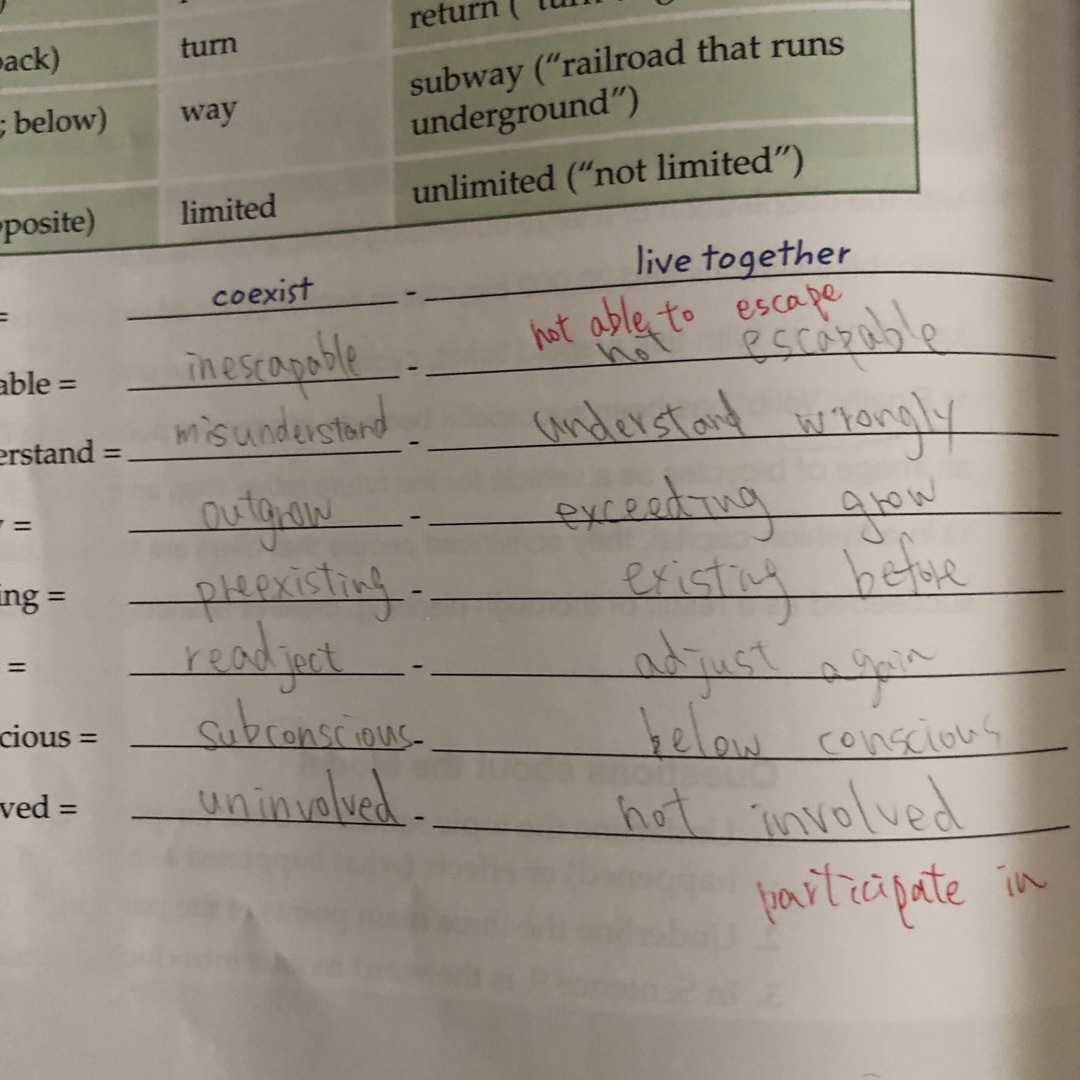 return (
ack) turn
subway ("railroad that runs
; below) way underground")
unlimited ("not limited")
posite) limited
= coexist - live together
not able to escape
able = inescapable - not escapable
erstand = misunderstand - understand wrongly
= outgrow - exceeding grow
ing = preexisting - existing before
= readject - adjust again
cious = subconscious - below conscious
ved = uninvolved - not involved
participate in